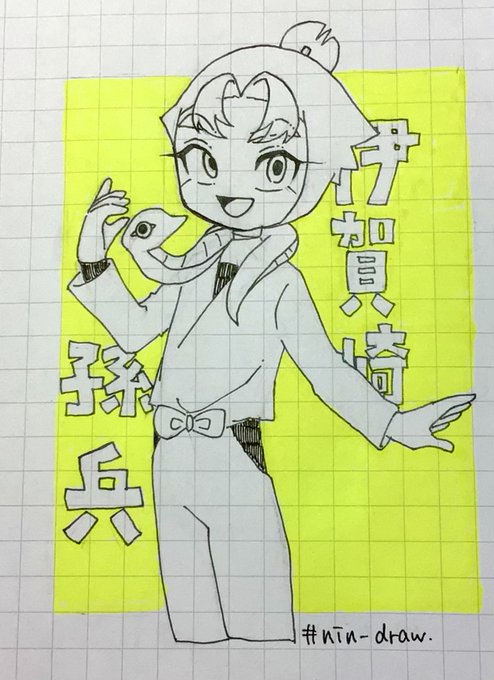 伊賀崎
孫兵
#nin-draw.